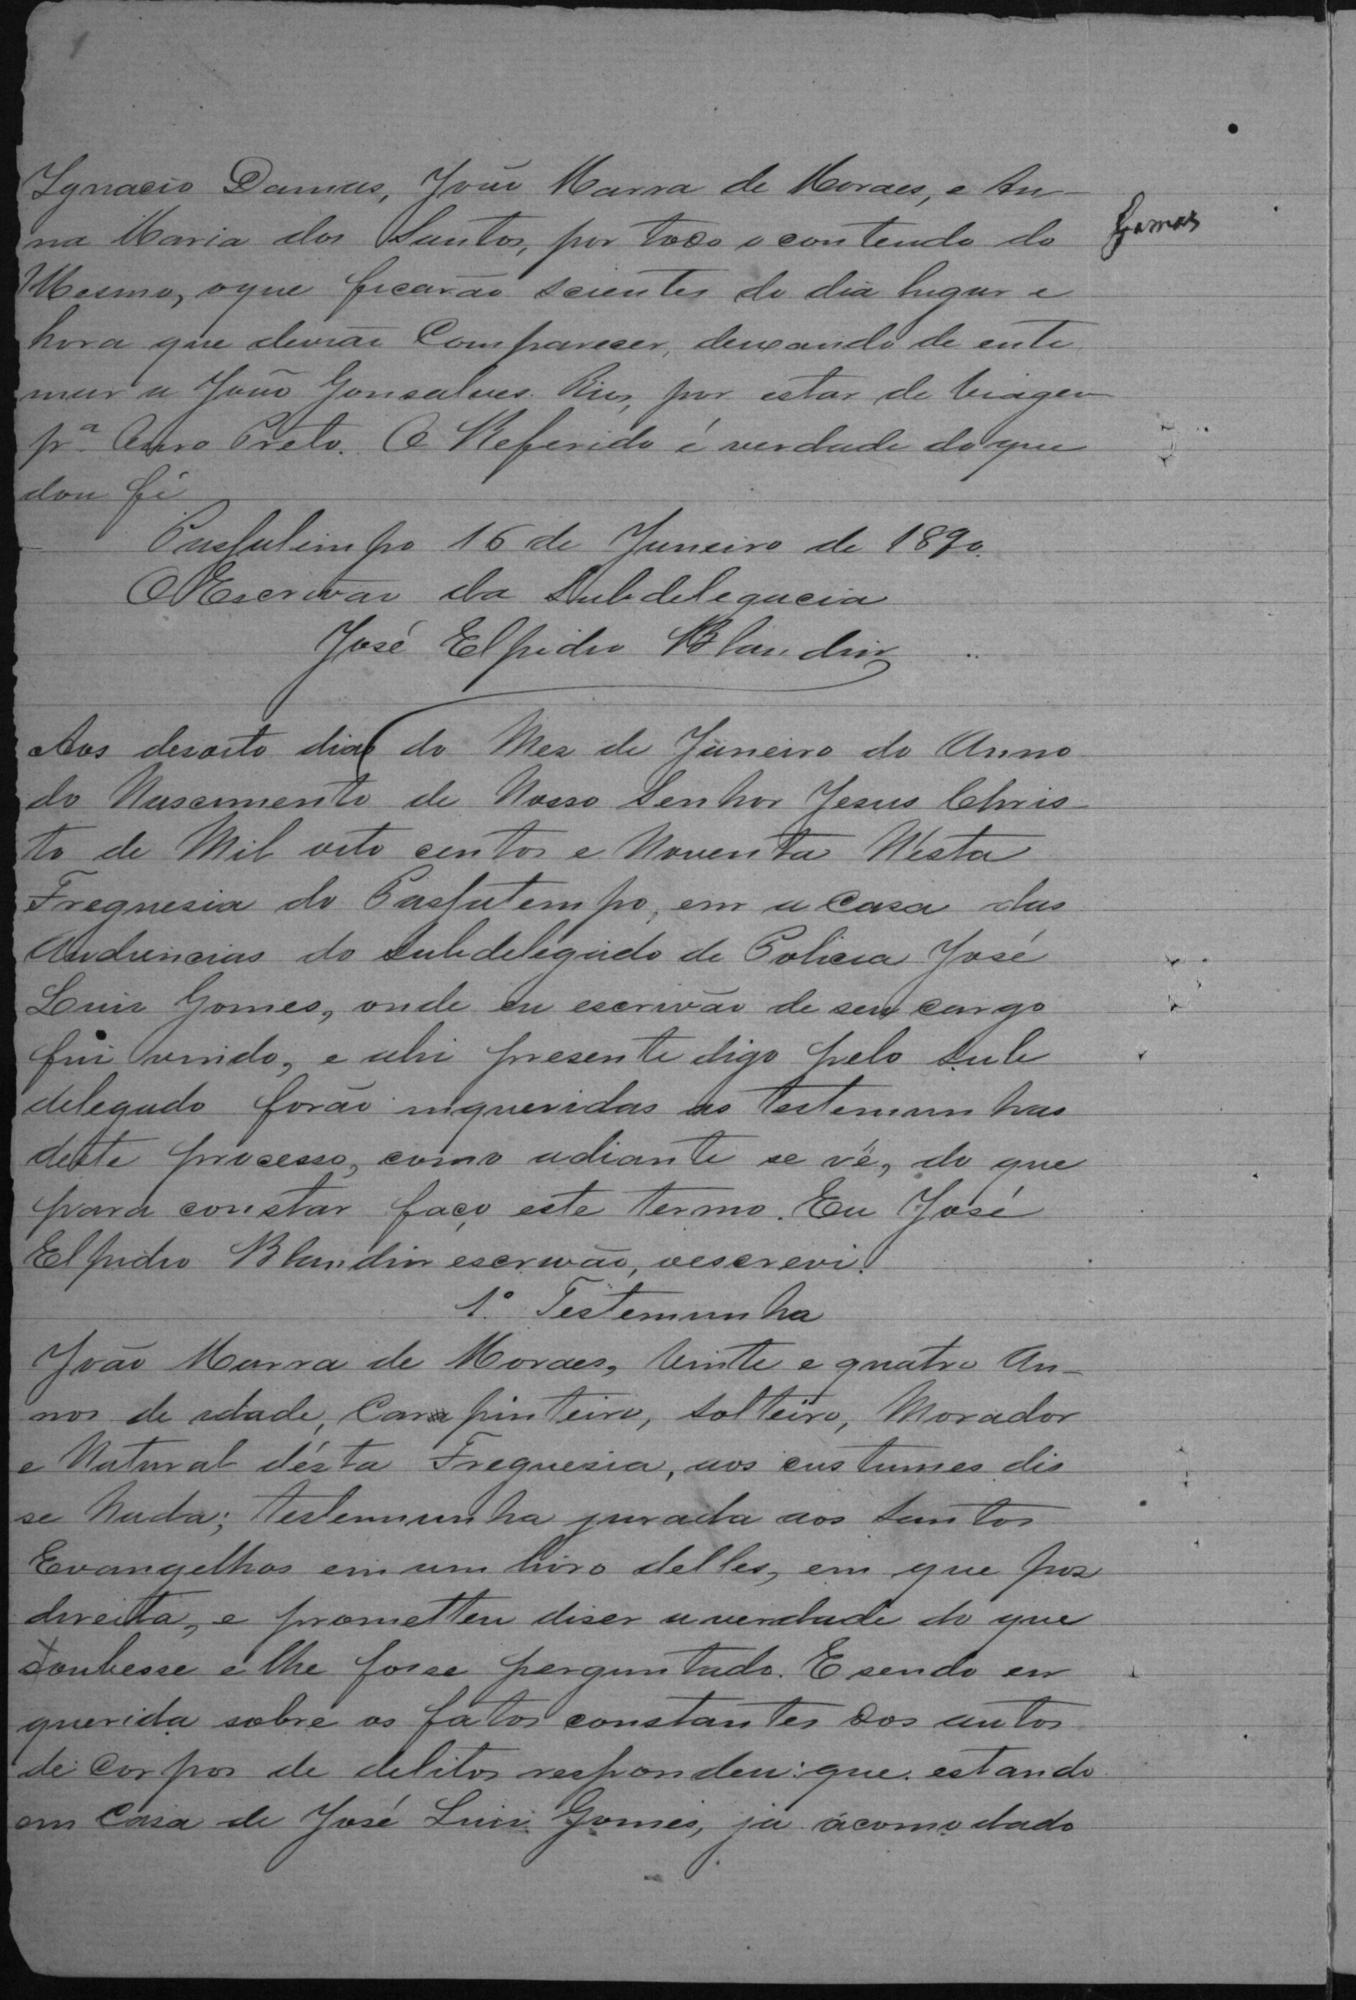 Ignacio Damas, João Marra de Moraes, e An-
na Maria dos Santos, por todo o contendo do
Mesmo, oque ficarão scientes do dia lugar e
hora que deverão Comparecer, deixando de inti
mar a João Gonsalves Rios, por estar de viagem
pª Ouro Preto. O Referido é verdade do que
dou fé
Passatempo 16 de Janeiro de 1890.
O Escrivão da Subdelegacia
José Elpidio Blandin
Aos desoito dias do Mez de Janeiro do Anno
do Nascimento de Nosso Senhor Jesus Chris-
to de Mil oito centos e Noventa Nesta
Freguesia do Passatempo, em a casa das
Audiencias do Subdelegado de Policia José
Luis Gomes, onde eu escrivão de seu cargo
fui vindo, e ahi presente digo pelo Sub
delegado forão inqueridas as testemunhas
deste processo, como adiante se vê, do que
para constar faço este termo. Eu José
Elpidio Blandin escrivão, oescrevi.
1º Testemunha
João Marra de Moraes, vinte e quatro An-
nos de idade, Carapinteiro, Solteiro, Morador
e Natural désta Freguesia, aos custumes dis
se Nada; testemunha jurada aos Santos
Evangelhos em um livro delles, em que poz
direita, e prometteu diser averdade do que
soubesse e lhe fosse perguntado. E sendo en
querida sobre os fatos constantes dos autos
de corpos de delitos respondeu: que estando
em Casa de José Luis Gomes, ja acomodado